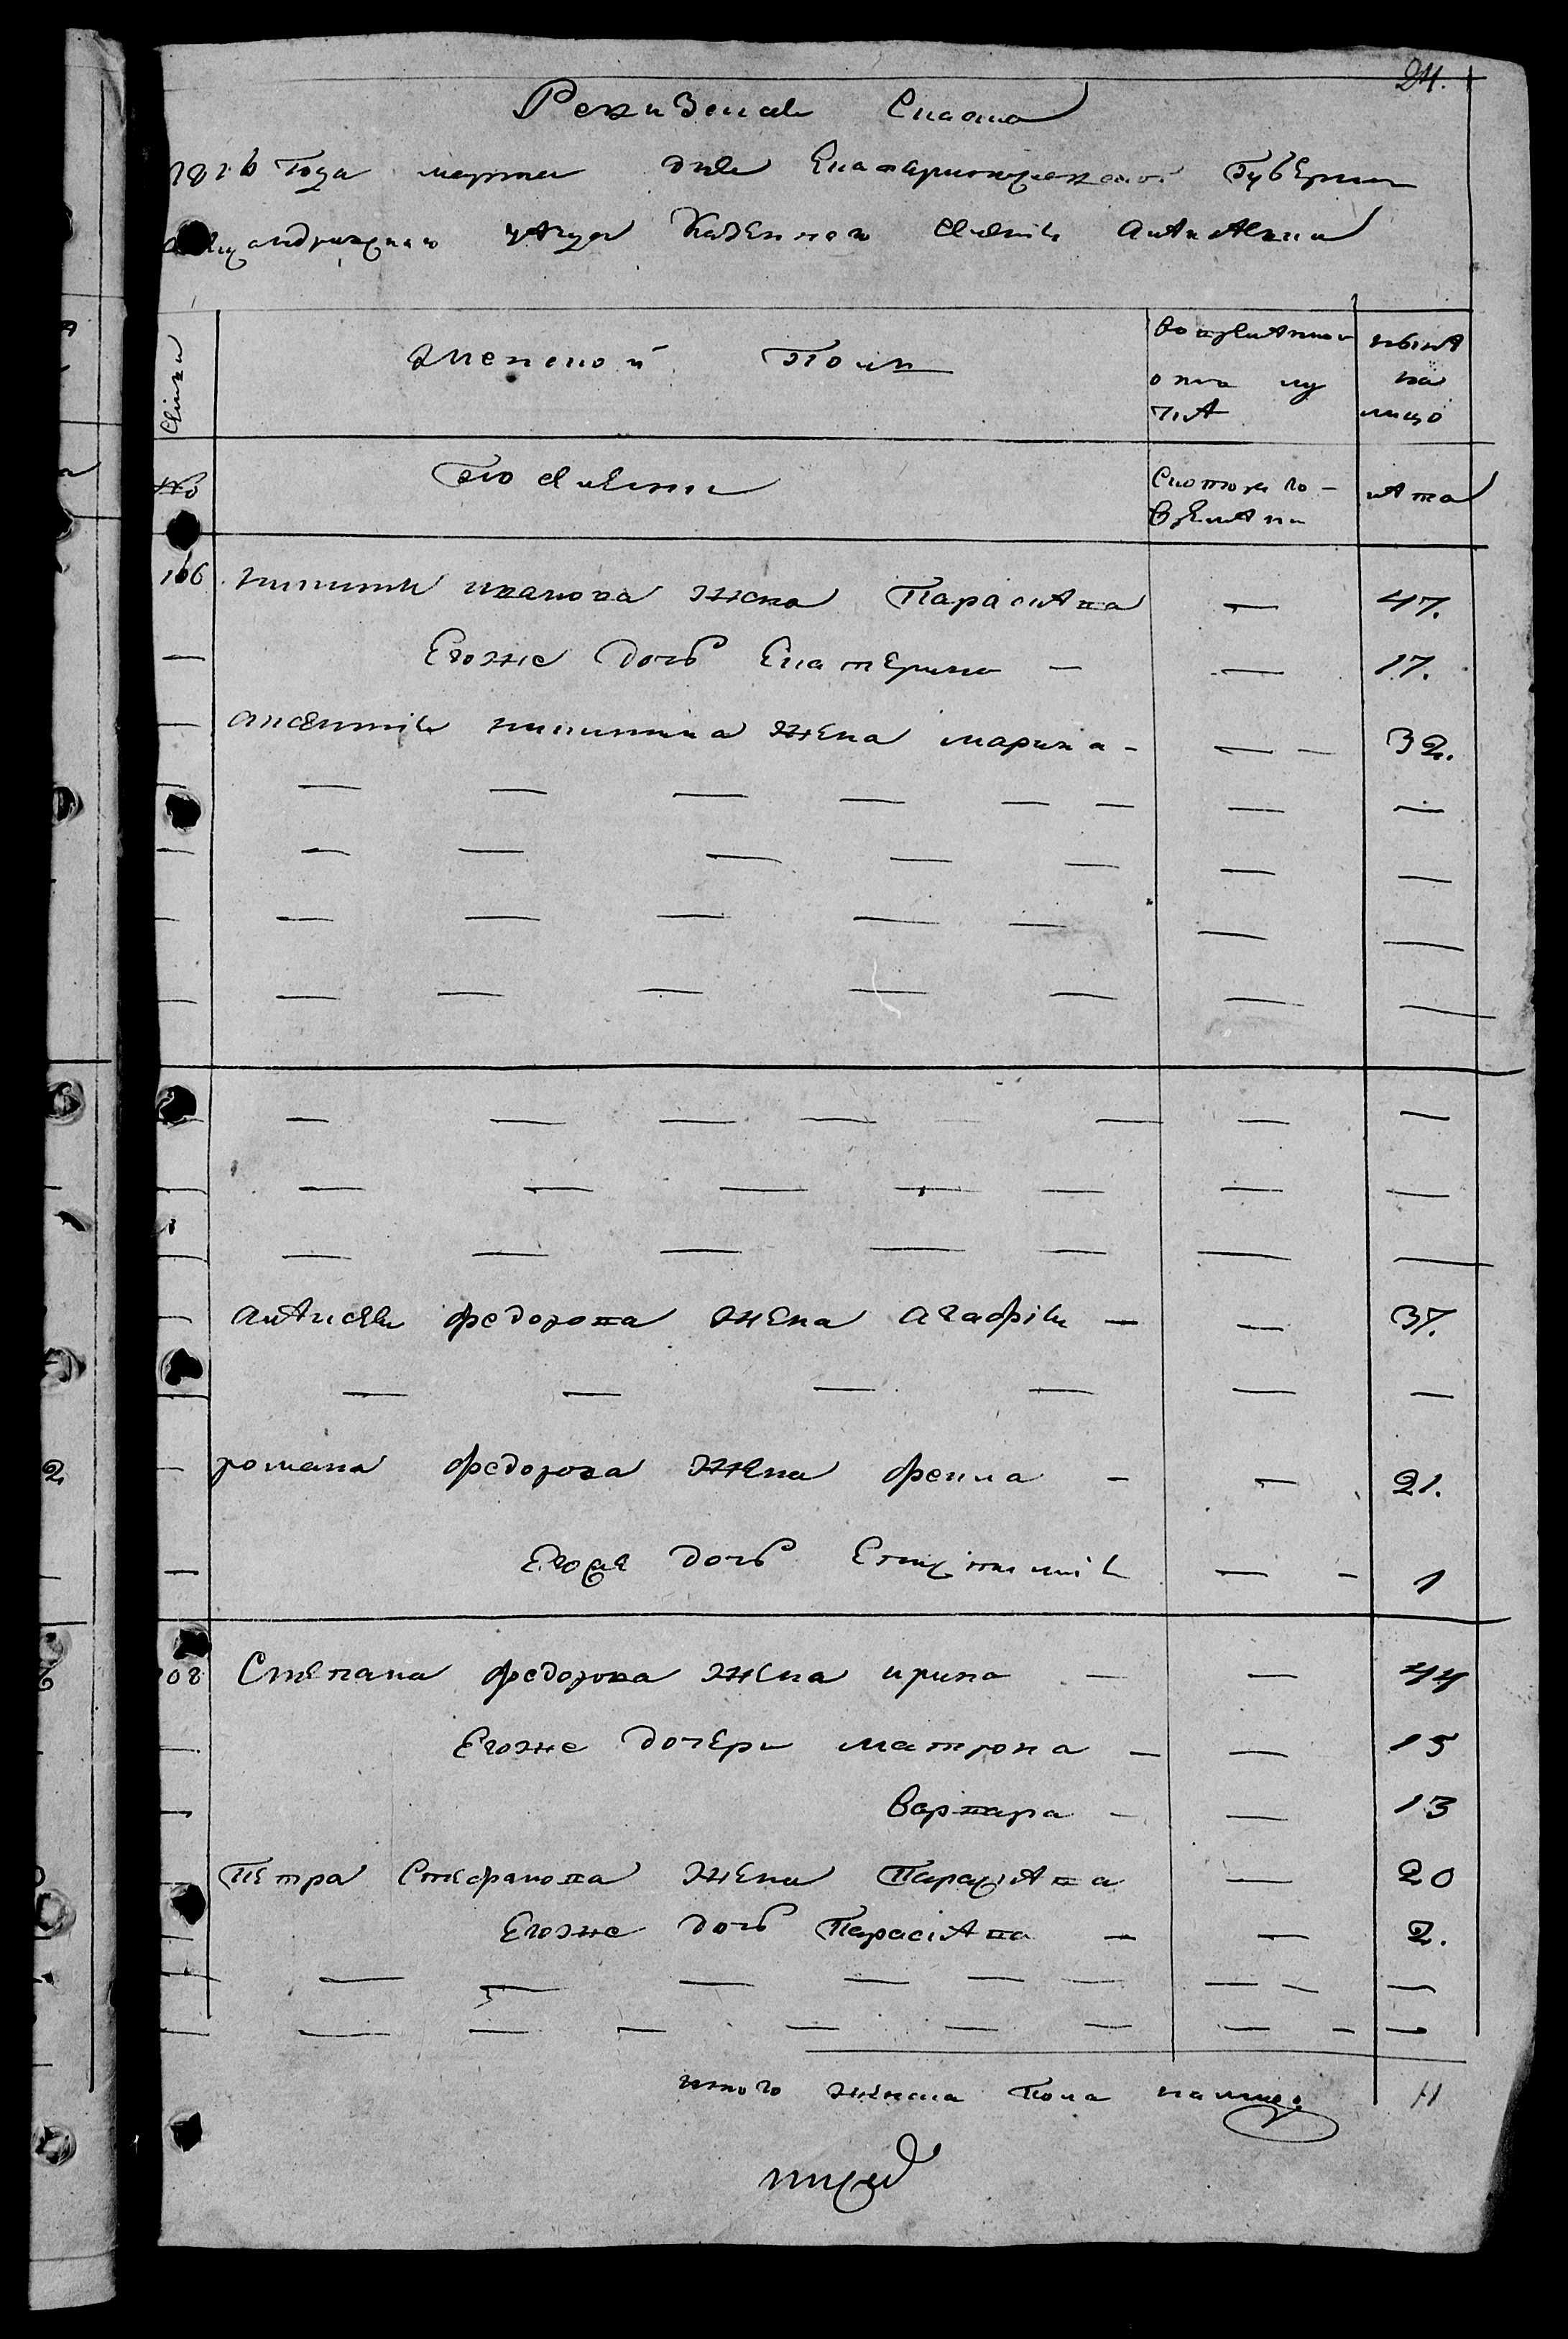 24.
Ревизская Сказка
1816 Года марта дня Екатеринославской Губернии
Александрийского уезда Казенной
Семьи
Женской Пол
во временной отлучке
ныне на лицо
№
По семьи
С которого времени
лета
106 никиты иванова жена Параскева — 47.
— Егоже дочь Екатерина — — 17.
— никитина жена марина - — 32.
— — — — — — — —
— — — — — — — —
— — — — — — — —
— — — — — — — —
— — — — — — —
— — — — — — — —
— — — — — — — —
— Алексея федорова жена агафия — — 37.
— — — — — — —
— романа федорова жена фекла - — 21.
— Егоже дочь — 1
108 Степана федорова жена ирина — — 44
— Егоже дочери матрона — — 15
— варвара - — 13
— Петра Стефанова жена Параскева — 20
— Егоже дочь Параскева — — 2.
— — — — — — — — —
— — — — — — — — —
итого женска пола налицо 11